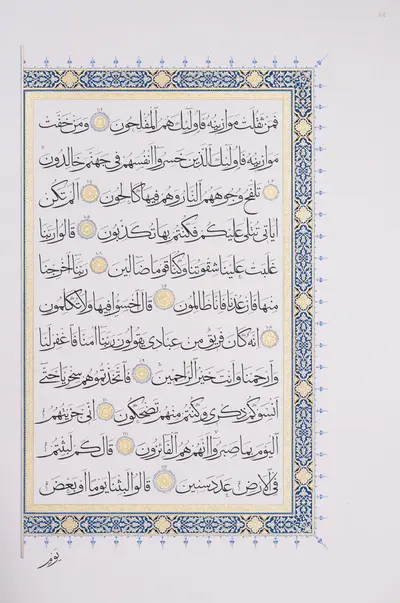 فمن ثقلت موازينه فاولئك هم المفلحون ۝ ومن خفت
موازينه فاولئك الذين خسروا انفسهم في جهنم خالدون
۝ تلفح وجوههم النار وهم فيها كالحون ۝ الم تكن
اياتي تتلى عليكم فكنتم بها تكذبون ۝ قالوا ربنا
غلبت علينا شقوتنا وكنا قوما ضالين ۝ ربنا اخرجنا
منها فان عدنا فانا ظالمون ۝ قال اخسؤا فيها ولا تكلمون
۝ انه كان فريق من عبادي يقولون ربنا امنا فاغفر لنا
وارحمنا وانت خير الراحمين ۝ فاتخذتموهم سخريا حتى
انسوكم ذكري وكنتم منهم تضحكون ۝ اني جزيتهم
اليوم بما صبروا انهم هم الفائزون ۝ قال كم لبثتم
في الارض عدد سنين ۝ قالوا لبثنا يوما او بعض